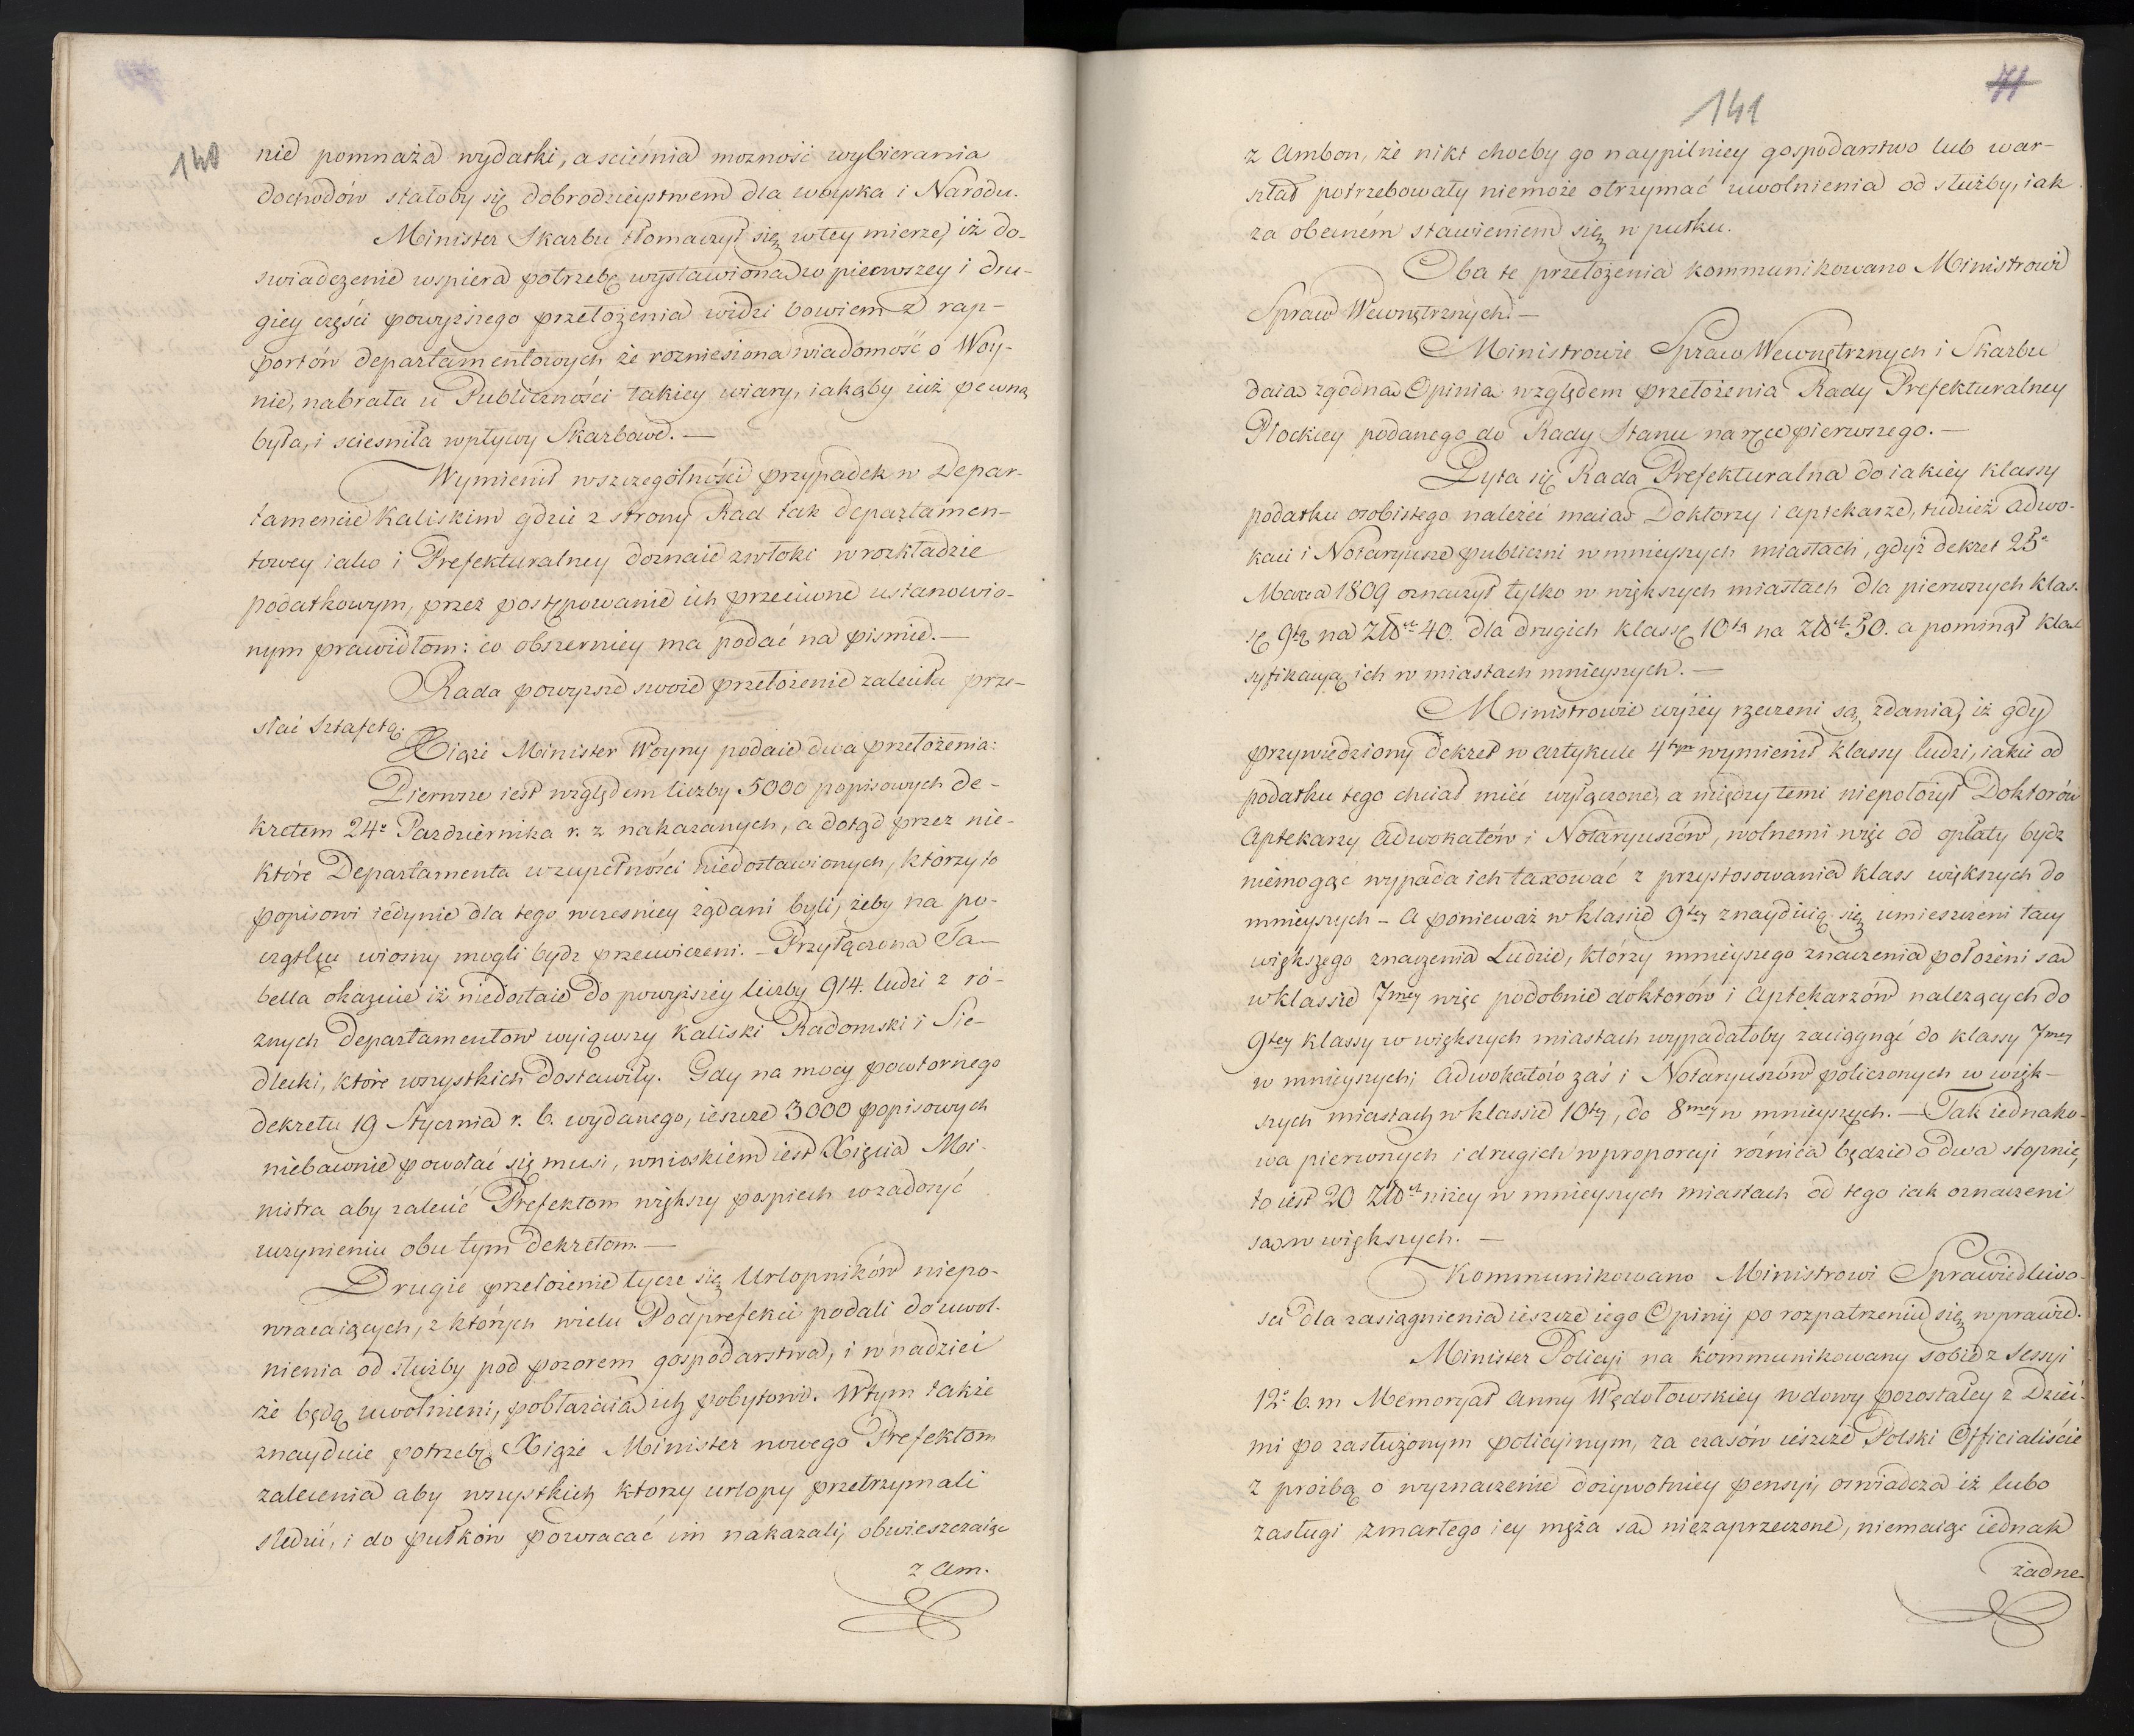 140
nie pomnaża wydatki, a scieśnia mozność wybierania
dochodów stałoby się dobrodzieystwem dla woyska i Narodu.
Minister Skarbu tłomaczył się w tey mierze, iż do-
swiadczenie wspiera potrzebę wystawioną w pierwszey i dru-
giey części powyższego przełożenia widzi bowiem z rap-
portów departamentowych że rozniesiona wiadomość o Woy-
nie, nabrała u Publiczności takiey wiary, iakąby iuż pewną
była, i sciesniła wpływy Skarbowe. —
Wymienił w szczególności przypadek w Depar-
tamencie Kaliskim gdzie z strony Rad tak departamen-
towey iako i Prefekturalney doznaie zwłoki w rozkładzie
podatkowym, przez postępowanie ich przeciwne ustanowio-
nym prawidłom: co obszerniey ma podać na pismie. —
Rada powyższe swoie przełożenie zaleciła prze-
słać Sztafetą.
Xiąże Minister Woyny podaie dwa przełożenia:
Pierwsze iest względem liczby 5000 popisowych de-
kretem 24º Pazdziernika r. z nakazanych, a dotąd przez nie-
które Departamenta w zupełności niedostawionych, którzy to
popisowi iedynie dla tego wcześniey żądani byli, żeby na po-
czątku wiosny mogli bydz przewiczeni. — Przyłączona Ta-
bella okazuie iż niedostaie do powyższey liczby 914. ludzi z ró-
znych Departamentow wyiąwszy Kaliski Radomski i Sie-
dlecki, które wszystkich dostawiły. Gdy na mocy powtornego
dekretu 19 Stycznia r. b. wydanego, ieszcze 3000 popisowych
niebawnie powołać się musi, wnioskiem iest Xięcia Mi-
nistra aby zalecić Prefektom większy pospiech w zadosyć
uczynieniu obu tym dekretom. —
Drugie przełożenie tycze się Urlopników niepo-
wracaiących, z których wielu Podprefekci podali do uwol-
nienia od służby pod pozorem gospodarstwa, i w nadziei
że będą uwolnieni, pobłażaią ich pobytowi. W tym także
znayduie potrzebę Xiąże Minister nowego Prefektom
zalecenia aby wszystkich ktorzy urlopy przetrzymali
sledzić, i do pułków powracać im nakazali, obwieszczaiąc
z Am.
141
71
z Ambon, że nikt choćby go naypilniey gospodarstwo lub war-
sztat potrzebowały niemoże otrzymać uwolnienia od służby, iak
za obecném stawieniem się w pułku.
Oba te przełożenia kommunikowano Ministrowi
Spraw Wewnętrznych. —
Ministrowie Spraw Wewnętrznych i Skarbu
daią zgodną Opinią względem przełożenia Rady Prefekturalney
Płockiey podanego do Rady Stanu na ręce pierwszego. —
Pyta się Rada Prefekturalna do iakiey klassy
podatku osobistego należeć maią Doktorzy i Aptekarze, tudzież Adwo-
kaci i Notaryusze publiczni w mnieyszych miastach, gdyż dekret 25º
Marca 1809 oznaczył tylko w większych miastach dla pierwszych klas-
sę 9tą na Złot 40. dla drugich klassę 10tą na Złot 50. a pominął klas
syfikacyą ich w miastach mnieyszych. —
Ministrowie wyżey rzeczeni są zdania, iż gdy
przywiedziony dekret w artykule 4tym wymienił klassy ludzi, iakie od
podatku tego chciał mieć wyłączone, a między temi niepołożył Doktorów
Aptekarzy Adwokatów i Notaryuszów, wolnemi więc od opłaty bydz
niemogąc wypada ich taxować z przystosowania klass większych do
mnieyszych — A ponieważ w klassie 9tey znayduią się umieszczeni tacy
większego znaczenia Ludzie, którzy mnieyszego znaczenia położeni są
w klassie 7mey więc podobnie doktorów i Aptekarzów należących do
9tey klassy w większych miastach wypadałoby zaciągnąć do klassy 7mey
w mnieyszych; Adwokatów zaś i Notaryuszów policzonych w więk-
szych miastach w klassie 10tey, do 8mey w mnieyszych. — Tak iednako-
wa pierwszych i drugich w proporcyi różnica będzie o dwa stopnie,
to iest 20 Złot niżey w mnieyszych miastach od tego iak oznaczeni
są w większych. —
Kommunikowano Ministrowi Sprawiedliwo-
sci dla zasiągnienia ieszcze iego Opinij po rozpatrzeniu się w prawie.
Minister Policyi na kommunikowany sobie z Sessyi
12º b. m Memoryał Anny Wędołowskiey wdowy pozostałey z Dzieć-
mi po zasłużonym policyjnym, za czasów ieszcze Polski Officialiście
z proźbą o wyznaczenie dożywotniey pensyi, oswiadcza iż lubo
zasługi zmarłego iey męża są niezaprzeczone, niemaiąc iednak
żadne-